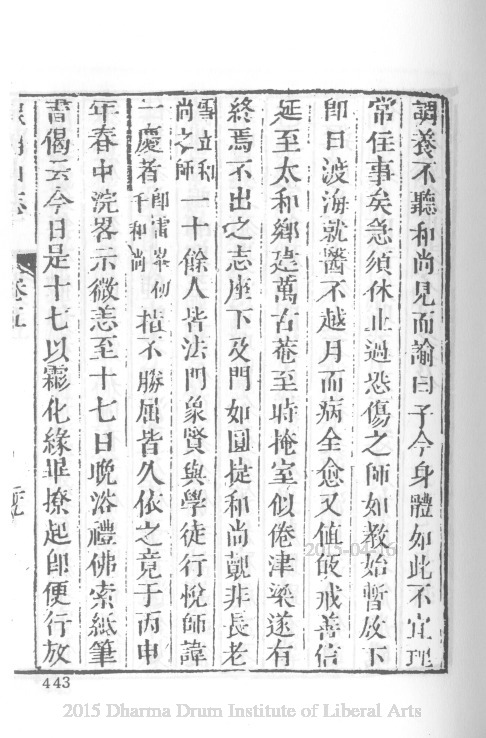 調養不聽和尚見而諭曰子今身體如此不宜理
常住事矣急須休止過恐傷之師如教始暫放下
卽日渡海就醫不越月而病全愈又值皈戒善信
延至太和鄉建萬古菴至時掩室似倦津梁遂有
終焉不出之志座下及門如圓捷和尚觀非長老
雪立和尚之師一十餘人皆法門象賢與學徒行悅師諱
一慶者卽
千和尚指不勝屈皆久依之竟于丙申
年春中浣畧示微恙至十七日晚浴禮佛索紙筆
書偈云今日是十七以霖化緣畢撩起卽便行放
卷五
443
2015-04-16
2015 Dharma Drum Institute of Liberal Arts